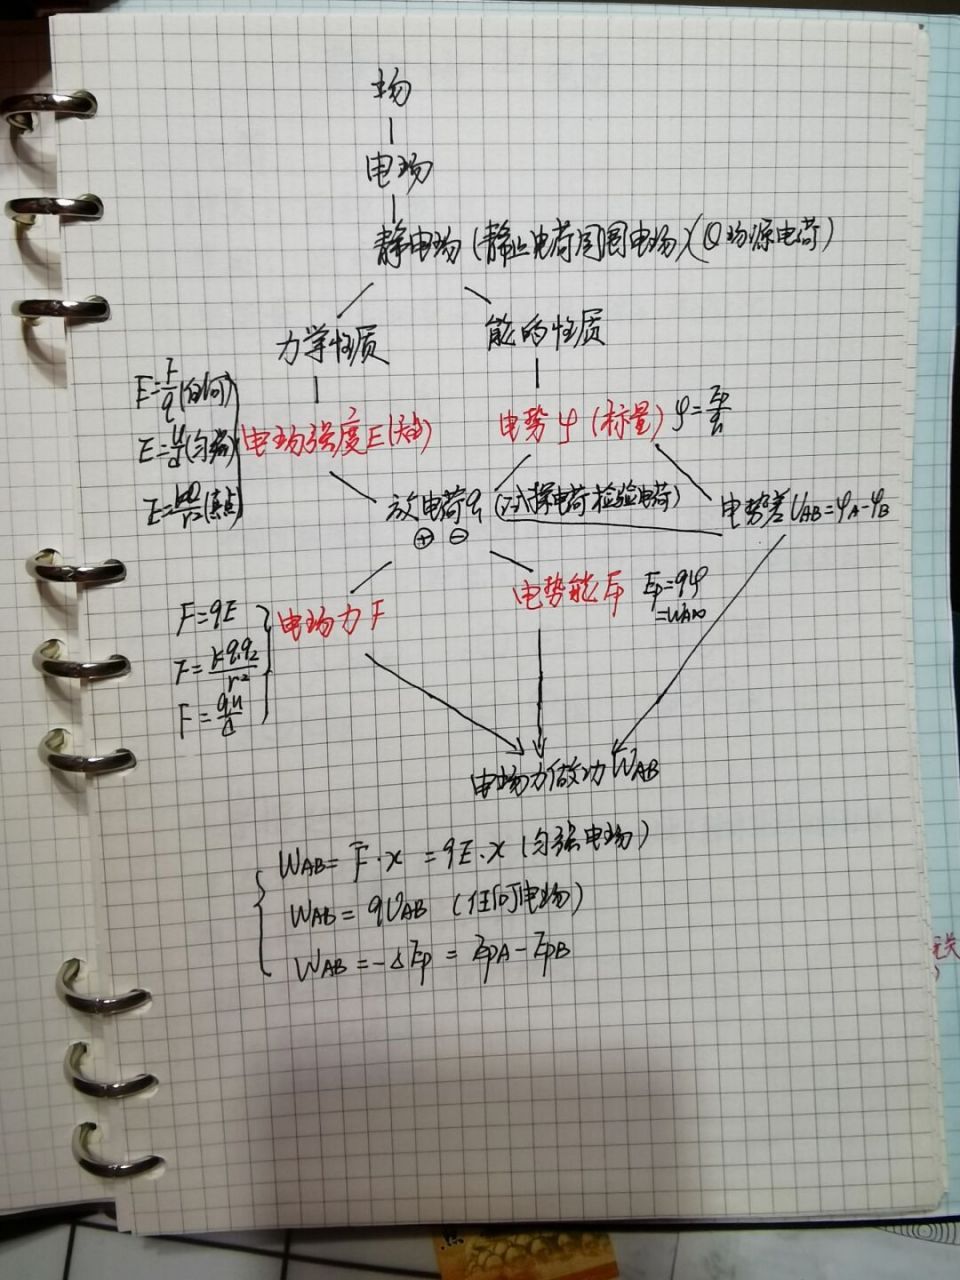 场
电场
静电场(静止电荷周围电场)(Q场源电荷)
力学性质
能的性质
E=F/q(任何)
E=U/d(匀强)
E=kQ/r²(真点)
电场强度E(矢)
电势φ(标量)
φ=Ep/q
放电荷q(试探电荷检验电荷)
⊕ ⊖
电势差UAB=φA-φB
F=qE
F=kq₁q₂/r²
F=qU/d
电场力F
电势能Ep
Ep=qφ
=WA∞
电场力做功WAB
WAB=F·x=qE·x(匀强电场)
WAB=qUAB(任何电场)
WAB=-ΔEp=EpA-EpB
无关